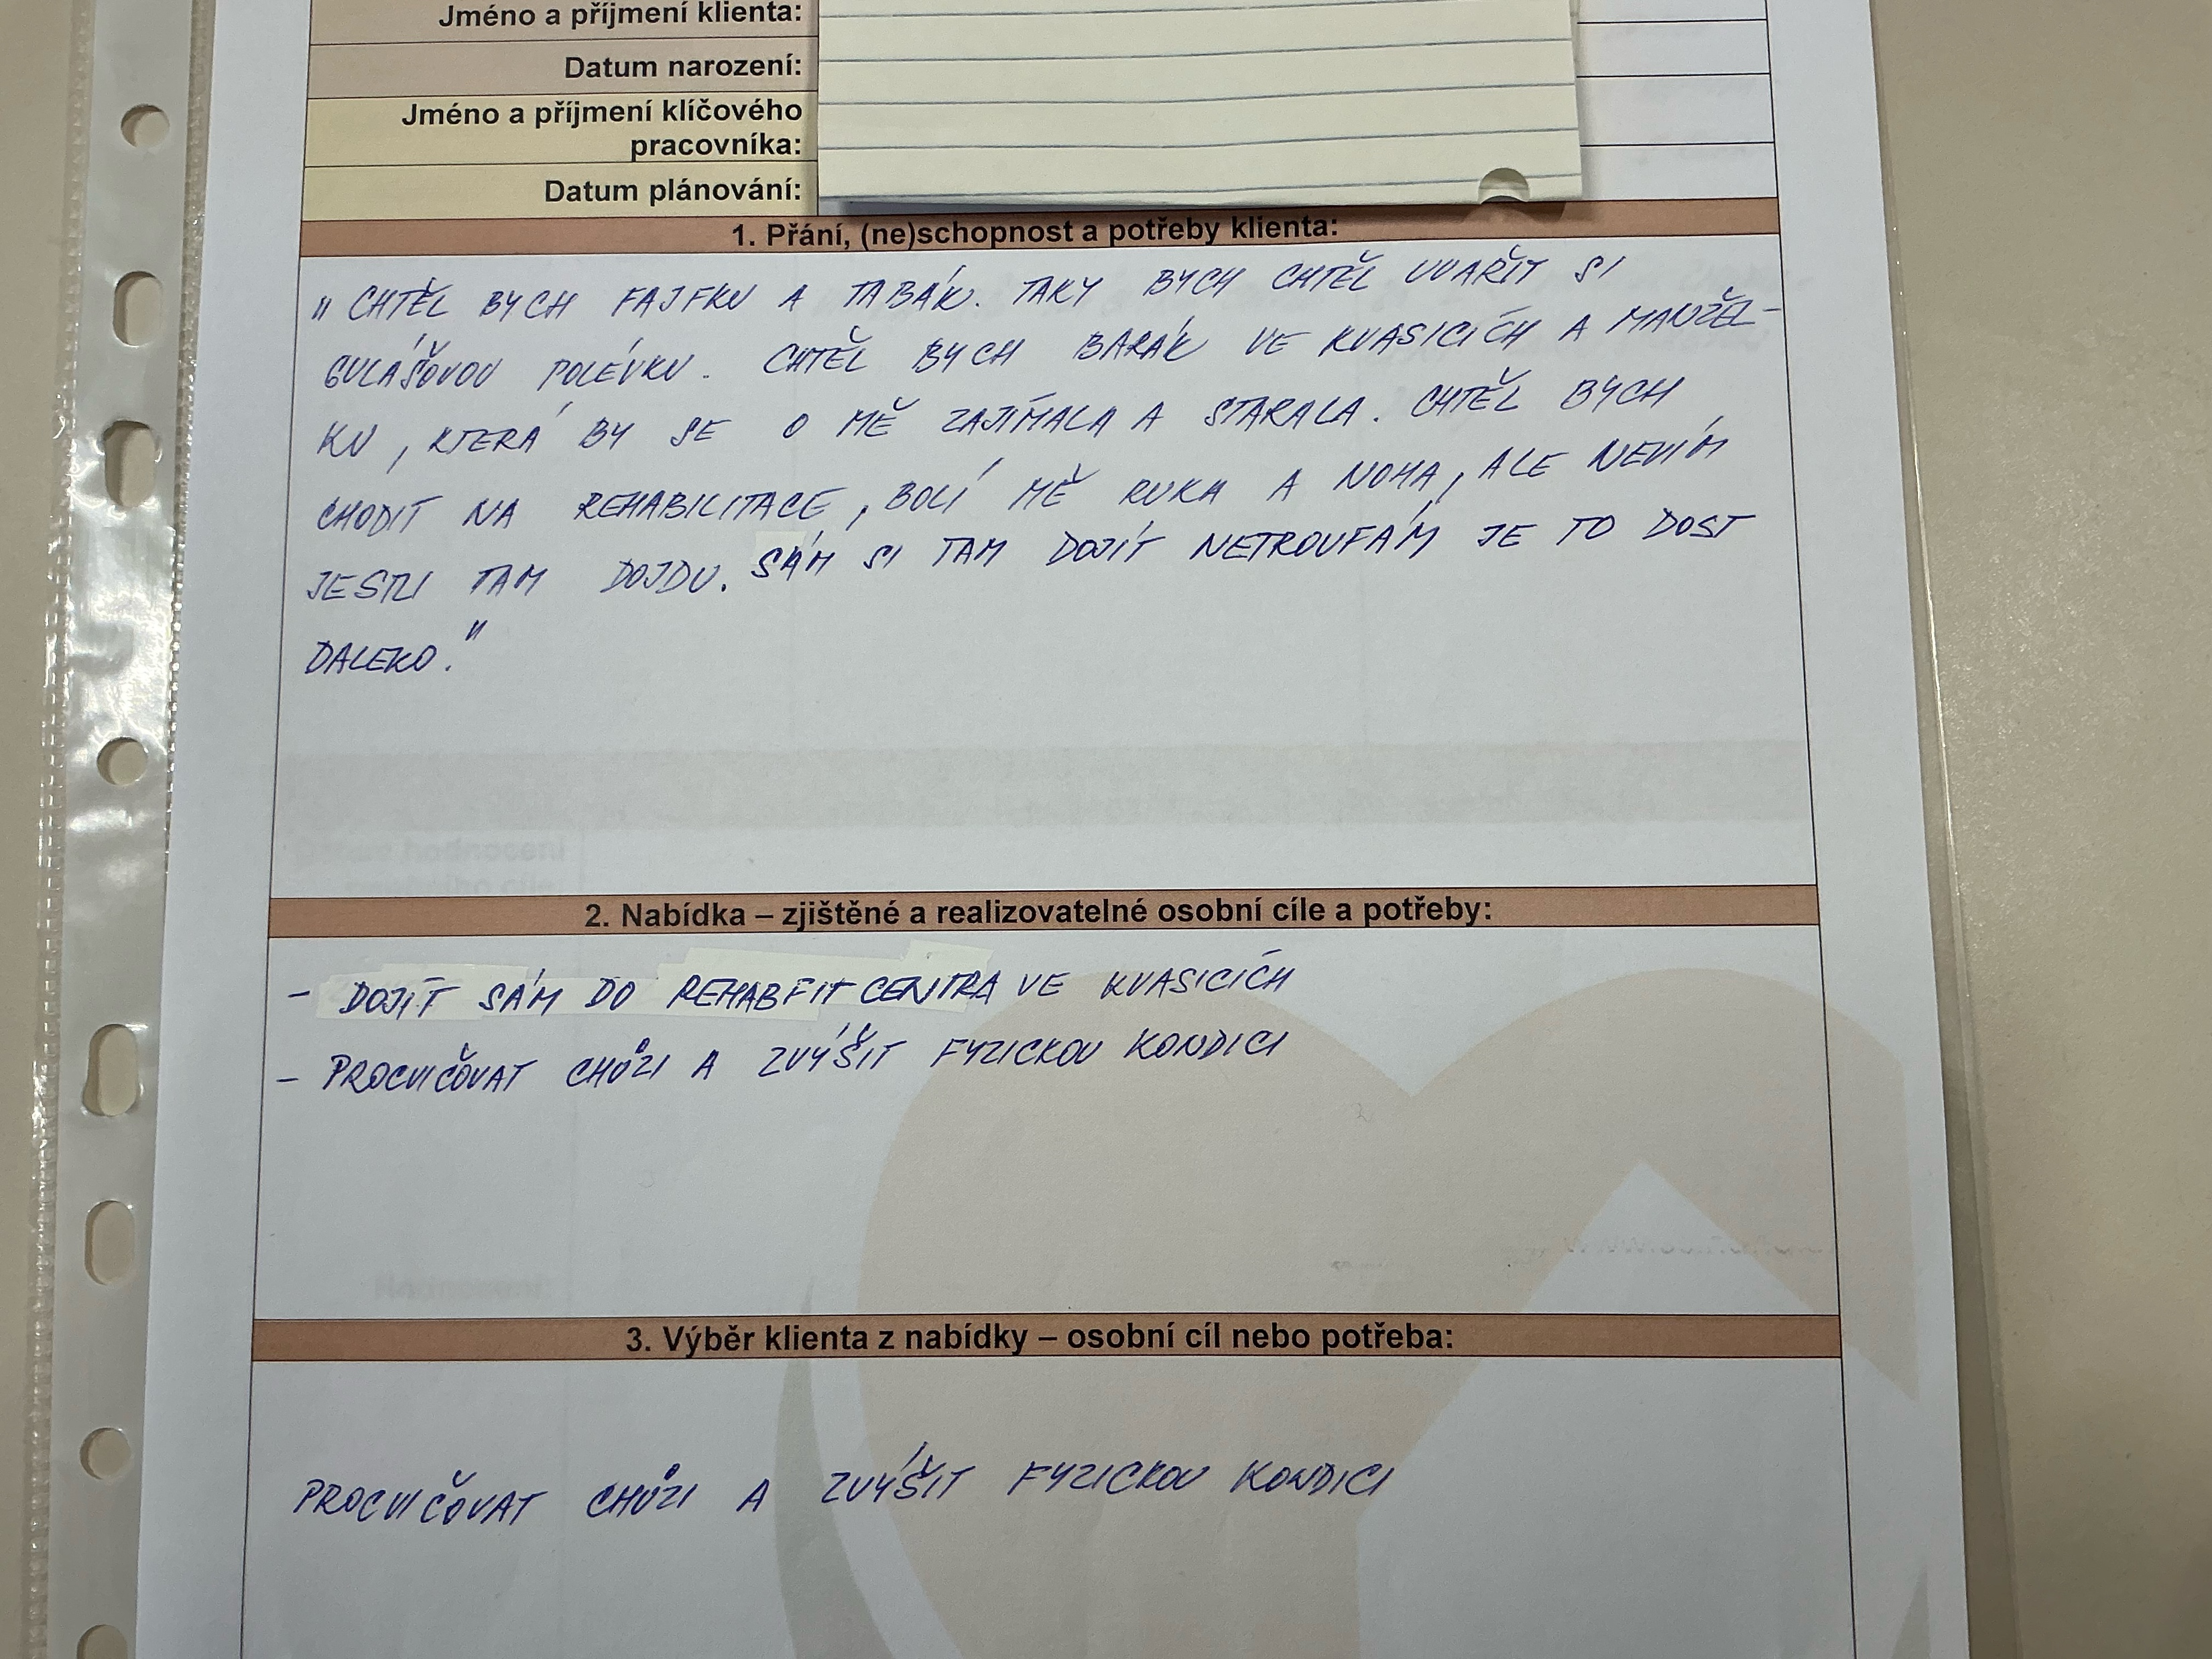 Jméno a příjmení klienta:
Datum narození:
Jméno a příjmení klíčového
pracovníka:
Datum plánování:
1. Přání, (ne)schopnost a potřeby klienta:
" CHTĚL BYCH FAJFKU A TABÁK. TAKY BYCH CHTĚL UVAŘIT SI
GULÁŠOVOU POLÉVKU. CHTĚL BYCH BARÁK VE KVASICÍCH A MANŽEL-
KU, KTERÁ BY SE O MĚ ZAJÍMALA A STARALA. CHTĚL BYCH
CHODIT NA REHABILITACE, BOLÍ MĚ RUKA A NOHA, ALE NEVÍM
JESTLI TAM DOJDU. SÁM SI TAM DOJÍT NETROUFÁM, JE TO DOST
DALEKO."
2. Nabídka – zjištěné a realizovatelné osobní cíle a potřeby:
- DOJÍT SÁM DO REHABFIT CENTRA VE KVASICÍCH
- PROCVIČOVAT CHŮZI A ZVÝŠIT FYZICKOU KONDICI
3. Výběr klienta z nabídky – osobní cíl nebo potřeba:
PROCVIČOVAT CHŮZI A ZVÝŠIT FYZICKOU KONDICI